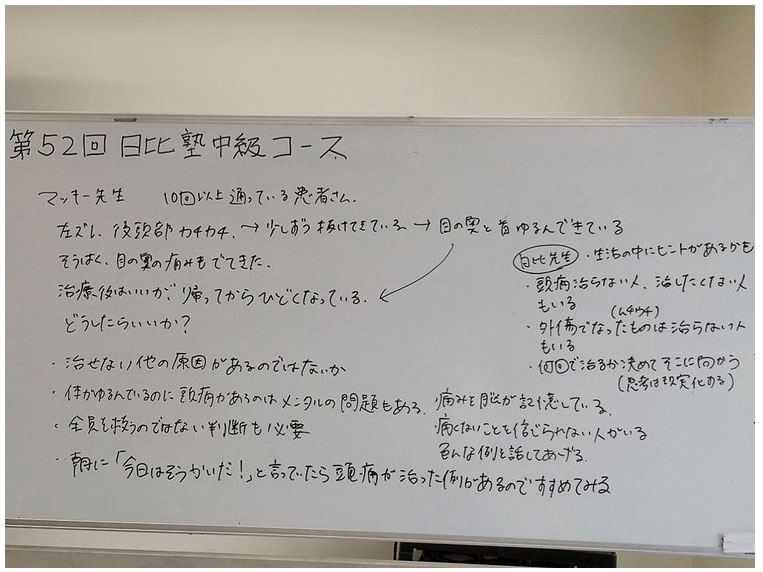 第52回 日比塾中級コース
マッキー先生 10回以上通っている患者さん。
左ズレ、後頭部カチカチ。→少しずつ抜けてきている→目の奥と首ゆるんできている
そうはく、目の奥の痛みもでてきた。
治療後はいいが、帰ってからひどくなっている。
どうしたらいいか?
・治せない他の原因があるのではないか
・体がゆるんでいるのに頭痛があるのはメンタルの問題もある。
・全員を救うのではない判断も必要
・朝に「今日はそうかいだ!」と言っていたら頭痛が治った例があるのですすめてみる
日比先生 ・生活の中にヒントがあるかも
・頭痛治らない人、治したくない人
もいる
(ムチウチ)
・外傷でなったものは治らない人
もいる
・何回で治るか決めてそこに向かう
(思考は現実化する)
痛みを脳が記憶している。
痛くないことを信じられない人がいる
色んな例を話してあげる。